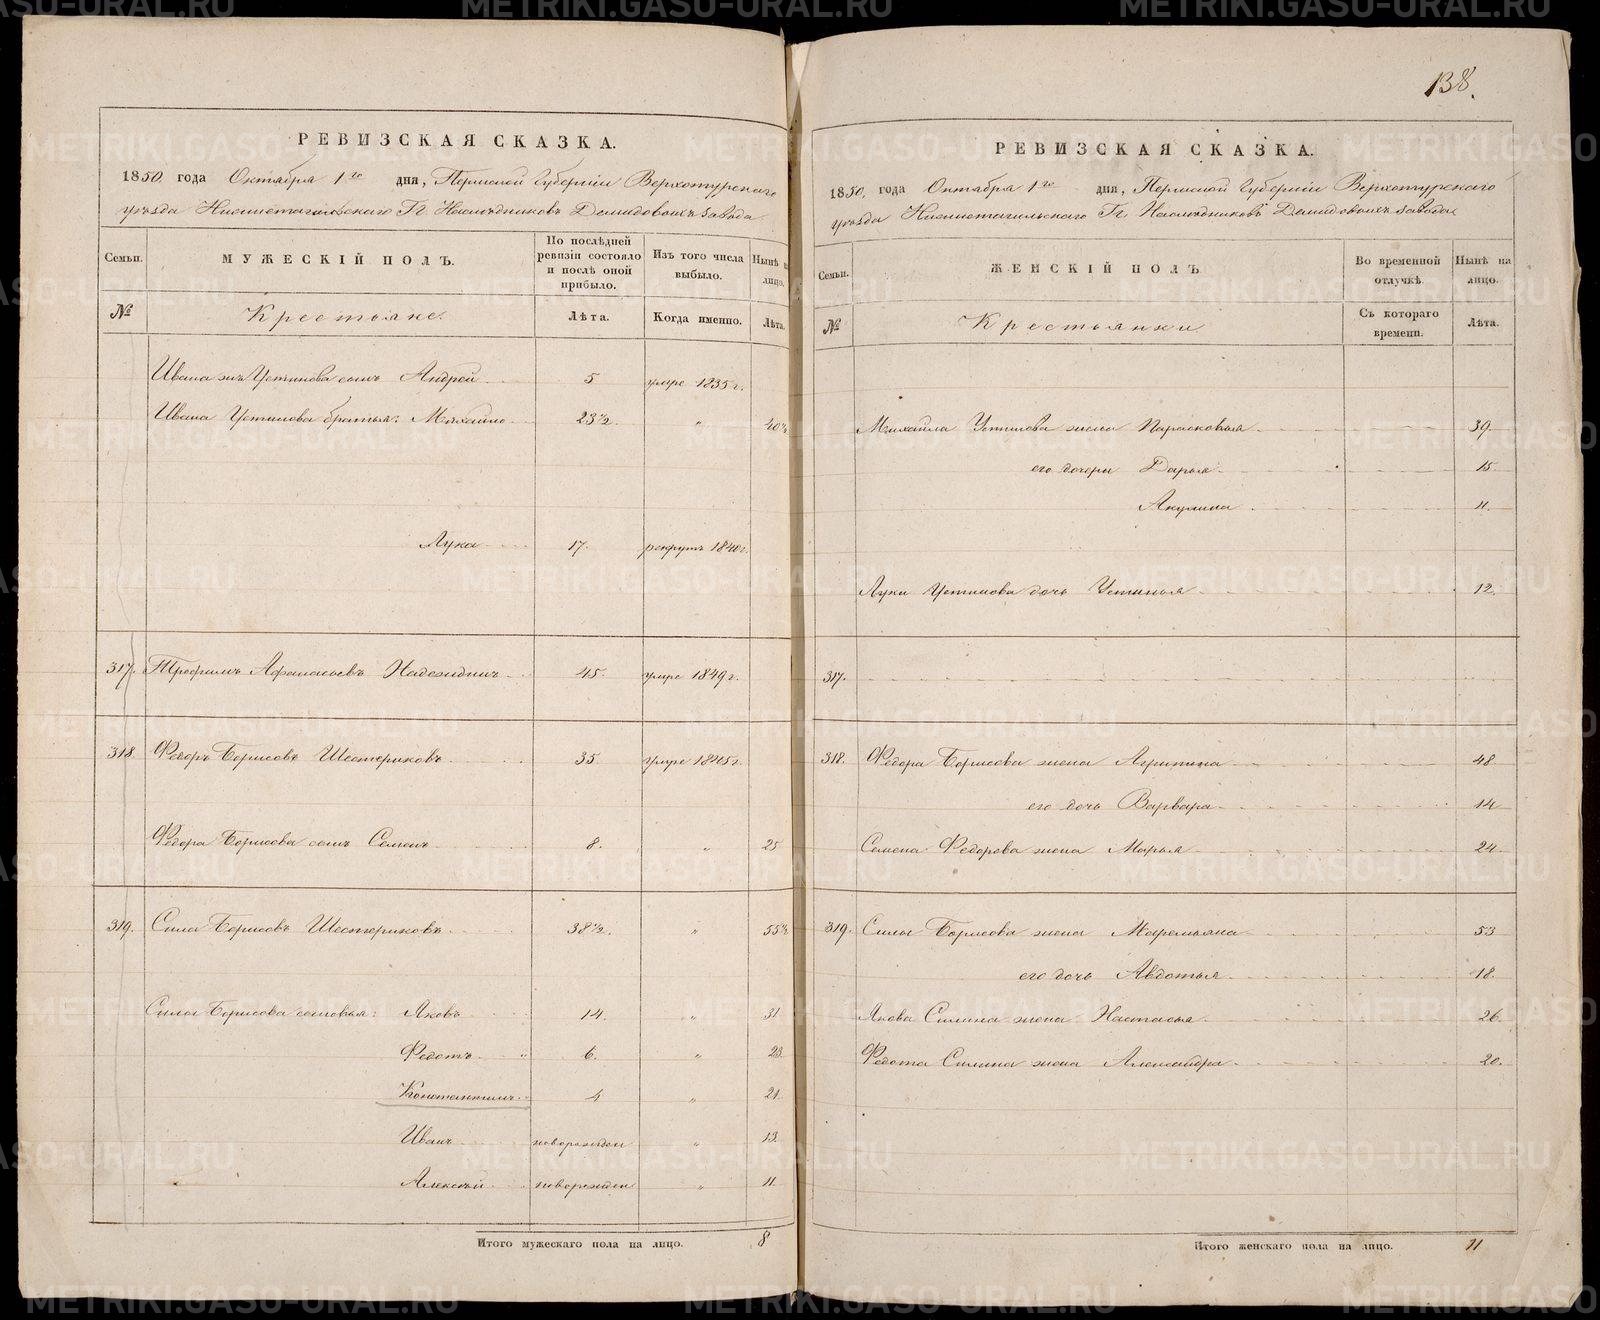 138.
РЕВИЗСКАЯ СКАЗКА.
1850 года Октября 1го дня, Пермской Губерніи Верхотурскаго
уѣзда Нижнетагильскаго Гг Наслѣдниковъ Демидовыхъ завода
Семьи. МУЖЕСКІЙ ПОЛЪ. По послѣдней ревизіи состояло и послѣ оной прибыло. Изъ того числа выбыло. Нынѣ на лицо.
№ Крестьяне. Лѣта. Когда именно. Лѣта.
Ивана Устинова сынъ Андрей 5 умре 1835 г.
Ивана Устинова братья: Михайло 23½ " 40½
Лука 17. рекрутъ 1840 г.
317. Трофимъ Афанасьевъ 45. умре 1849 г.
318. Федоръ Борисовъ Шестериковъ 35 умре 1845 г.
Федора Борисова сынъ Семенъ 8. " 25
319. Сила Борисовъ Шестериковъ 38½. " 55½
Силы Борисова сыновья: Яковъ 14. " 31
Федотъ 6. " 23
Константинъ 4 " 21
Иванъ новорожден " 13
Алексѣй новорожден " 11
Итого мужескаго пола на лицо. 8
РЕВИЗСКАЯ СКАЗКА.
1850 года Октября 1го дня, Пермской Губерніи Верхотурскаго
уѣзда Нижнетагильскаго Гг. Наслѣдниковъ Демидовыхъ завода
Семьи. ЖЕНСКІЙ ПОЛЪ Во временной отлучкѣ. Нынѣ на лицо.
№ Крестьянки Съ котораго времени. Лѣта.
Михайла Устинова жена Парасковья 39
его дочери Дарья 15
Акулина 11.
Луки Устинова дочь Устинья 12
317.
318. Федора Борисова жена Агрипина 48
его дочь Варвара 14
Семена Федорова жена Марья 24
319. Силы Борисова жена Маремьяна 53
его дочь Авдотья 18.
Якова Силина жена Настасья 26
Федота Силина жена Александра 20.
Итого женскаго пола на лицо. 11
METRIKI.GASO-URAL.RU